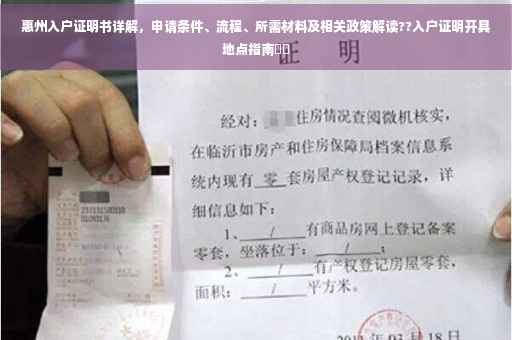 惠州入户证明书详解，申请条件、流程、所需材料及相关政策解读??入户证明开具
地点指南
证 明
经对： 住房情况查阅微机核实，
在临沂市房产和住房保障局档案信息系
统内现有 零 套房屋产权登记记录，详
细信息如下：
1、 / 有商品房网上登记备案
零套，坐落位于： / ；
2、 / 有产权登记房屋零套，
面积： / 平方米。
月 18 日